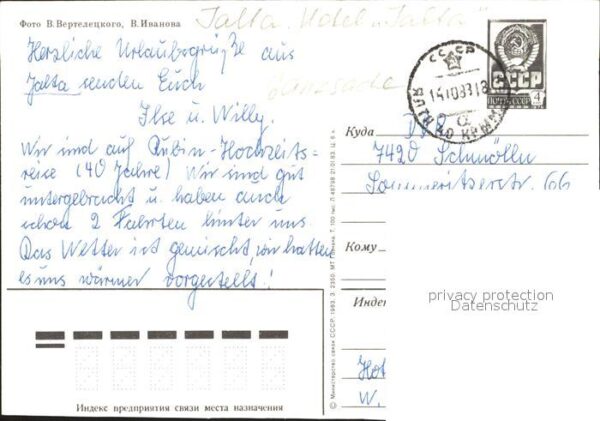 Фото В. Вертелецкого, В. Иванова
Jalta. Hotel „Jalta"
Herzliche Urlaubsgrüße aus
Jalta senden Euch
Ilse u. Willy.
Wir sind auf Rubin-Hochzeits=
reise (40 Jahre) Wir sind gut
untergebracht u. haben auch
schon 2 Fahrten hinter uns.
Das Wetter ist gemischt, wir hatten
es uns wärmer vorgestellt!
СССР
ПОЧТА СССР
4
СССР
ЯЛТА
КРЫМ
Куда
DDR
7420 Schmölln
Sommeritzerstr. 66
Кому
Индекс
privacy protection
Datenschutz
Hot
W.
Индекс предприятия связи места назначения
© Министерство связи СССР. 1983. З.